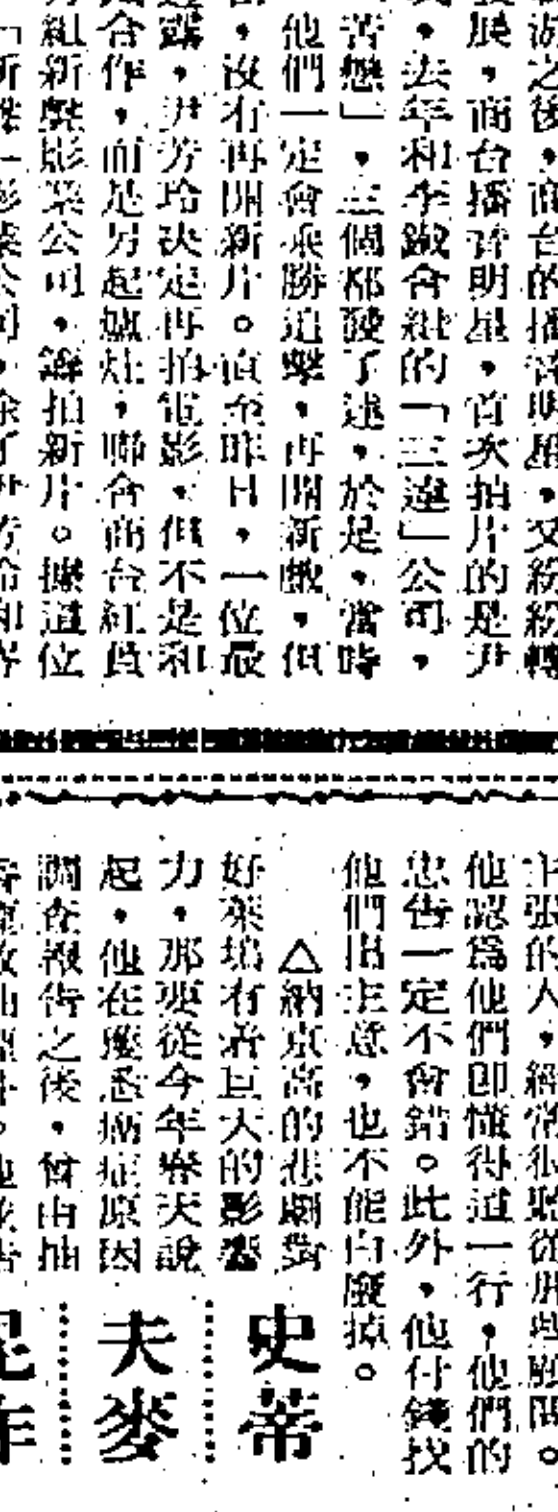 之後，商台的播音明星，又紛紛轉
展，商台播音明星，首次拍片的是尹
，去年和李鐵合組的「三達」公司，
苦戀」，三個都賺了達，於是，當時
他們一定會乘勝追擊，再開新戲，但
，沒有再開新片。直至昨日，一位最
露，尹芳玲決定再拍電影，但不是和
合作，而是另起爐灶，聯合商台紅員
組新聲影業公司，籌拍新片。據這位
新聲一影業公司，除了尹芳玲和
主張的人，經常很聽從
他認為他們即懂得這一行，他們的
忠告一定不會錯。此外，他付錢找
他們出主意，也不能白廢掉。
△納京高的悲劇對
好萊塢有着巨大的影響
力，那要從今年春天說
起，他在獲悉癌症原因
調查報告之後，曾由抽
史蒂
夫麥
昆昨